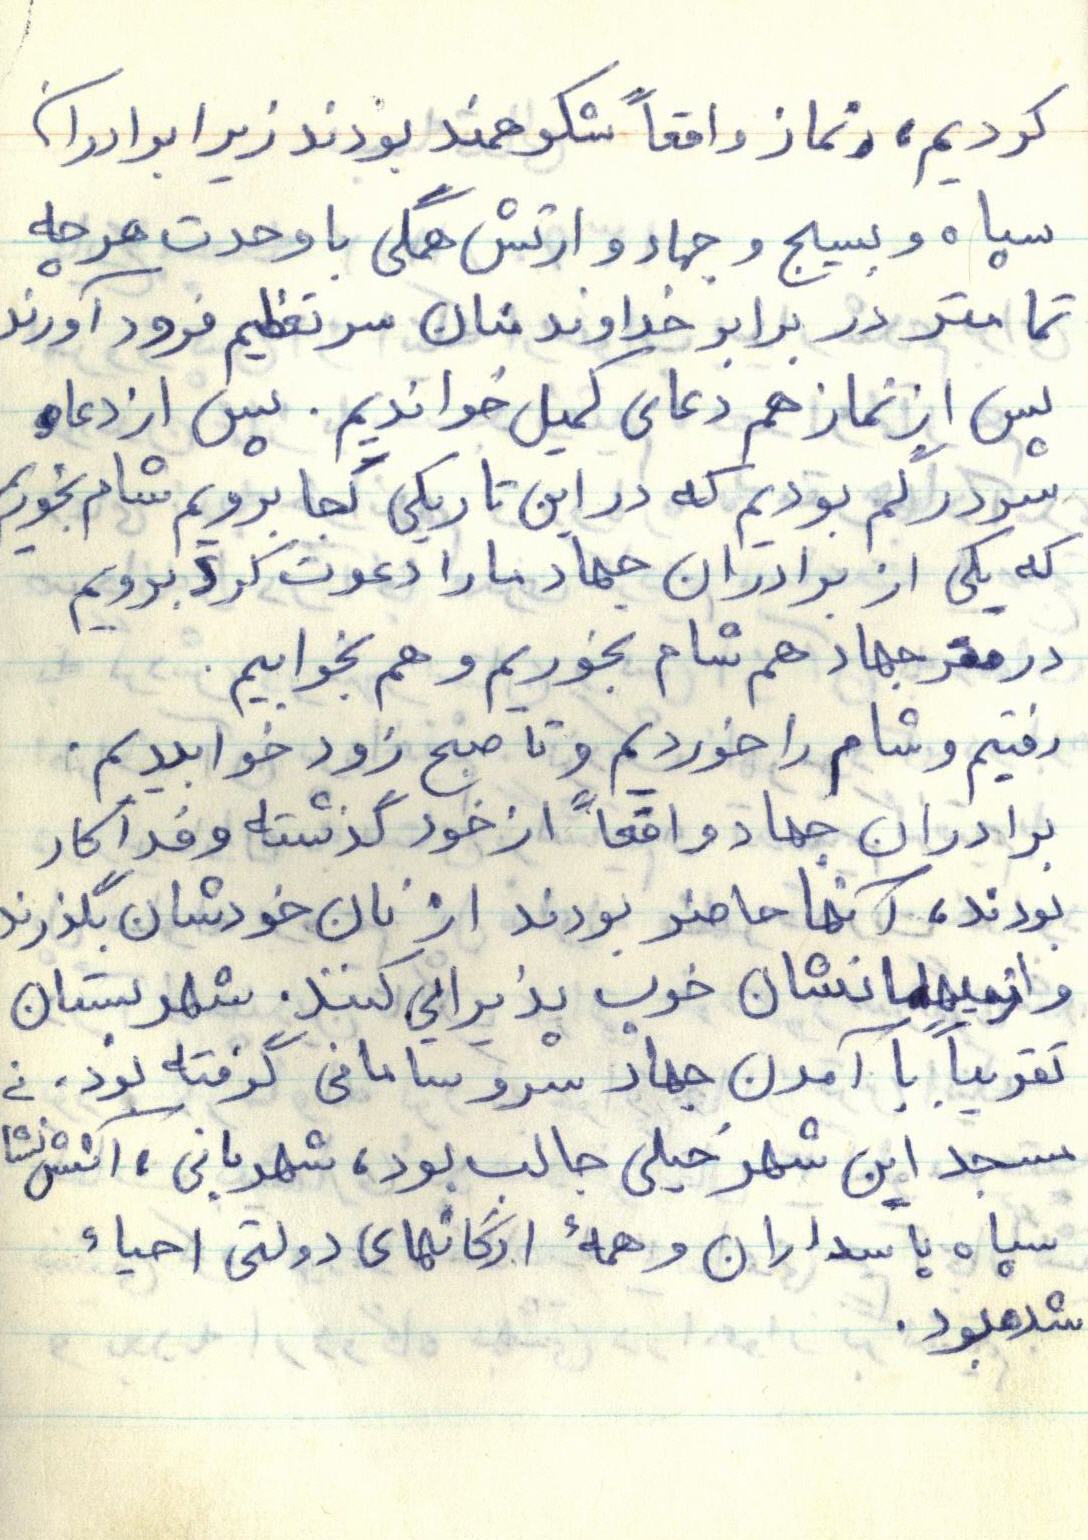 کردیم، نماز واقعاً شکوهمند بودند زیرا برادران
سپاه و بسیج و جهاد و ارتش همگی با وحدت هرچه
تمامتر در برابر خداوند منان سر تعظیم فرود آورند
پس از نماز هم دعای کمیل خواندیم. پس از دعا
سر در گم بودیم که در این تاریکی کجا برویم شام بخوریم
که یکی از برادران جهاد ما را دعوت کرد برویم
در مقر جهاد هم شام بخوریم و هم بخوابیم.
رفتیم و شام را خوردیم و تا صبح زود خوابیدیم.
برادران جهاد واقعاً از خود گذشته و فداکار
بودند، آنها حاضر بودند از نان خودشان بگذرند
و از میهمانشان خوب پذیرائی کنند. شهر بستان
تقریباً با آمدن جهاد سر و سامانی گرفته بود.
مسجد این شهر خیلی جالب بود، شهربانی، آتش نشا
سپاه پاسداران و همهٔ ارگانهای دولتی احیاء
شده بود.